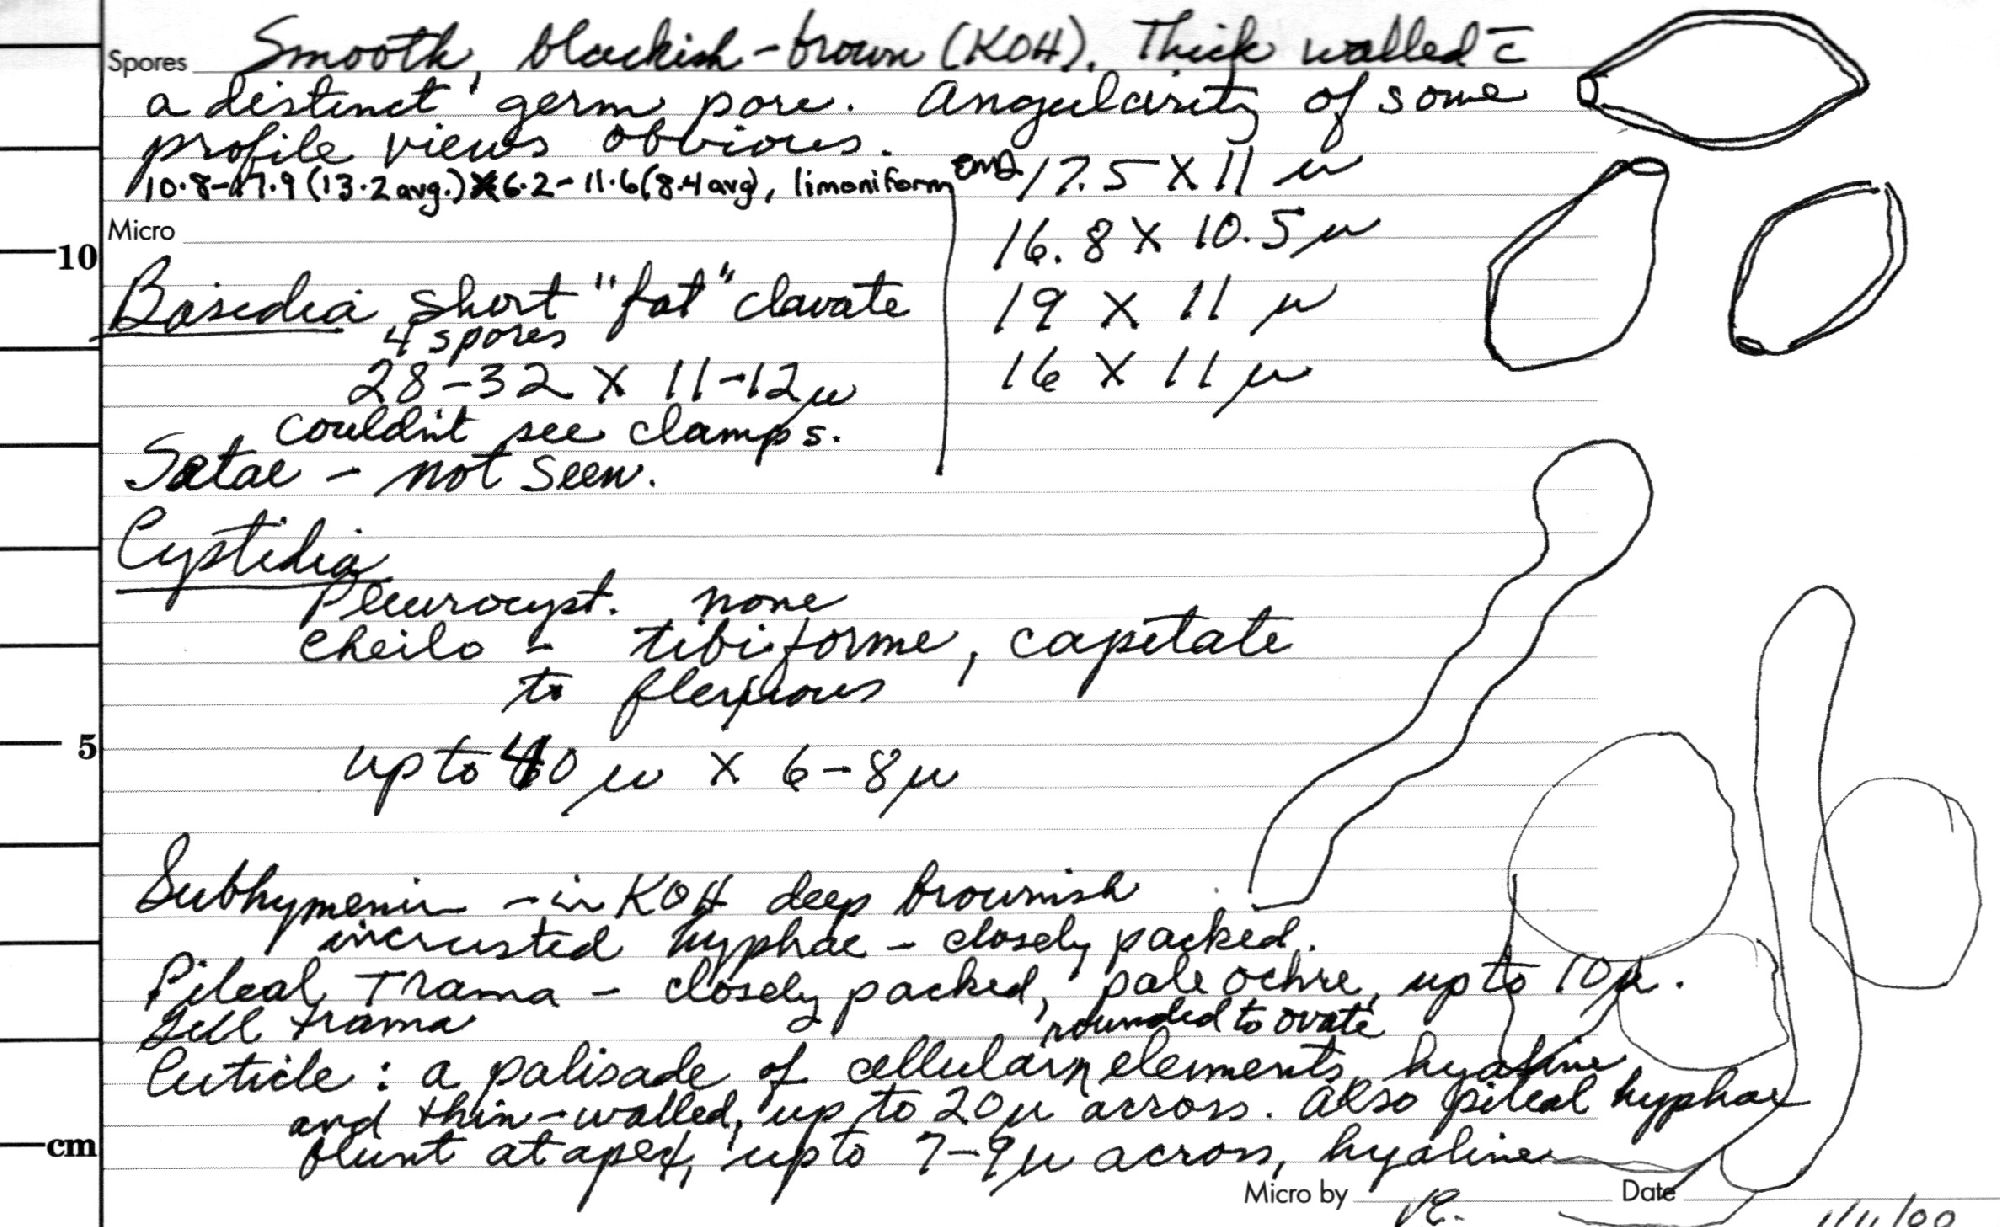 Spores Smooth, blackish-brown (KOH). Thick walled c̄
a distinct germ pore. Angularity of some
profile views obvious.
10.8-17.9 (13.2 avg.) X 6.2-11.6 (8.4 avg), limoniform
17.5 X 11 µ
Micro
16.8 X 10.5 µ
Basidia short "fat" clavate
19 X 11 µ
4 spores
28-32 X 11-12µ
16 X 11 µ
couldn't see clamps.
Setae - not seen.
Cystidia
Pleurocyst. none
Cheilo - tibiiforme, capitate
to flexuous
up to 40 µ X 6-8µ
Subhymenium - in KOH deep brownish
incrusted hyphae - closely packed.
Pileal Trama - closely packed, pale ochre, up to 10µ.
Gill trama
rounded to ovate
Cuticle: a palisade of cellular elements, hyaline
and thin-walled, up to 20µ across. Also pileal hyphae
blunt at apex, up to 7-9µ across, hyaline
Micro by Date
10
5
cm